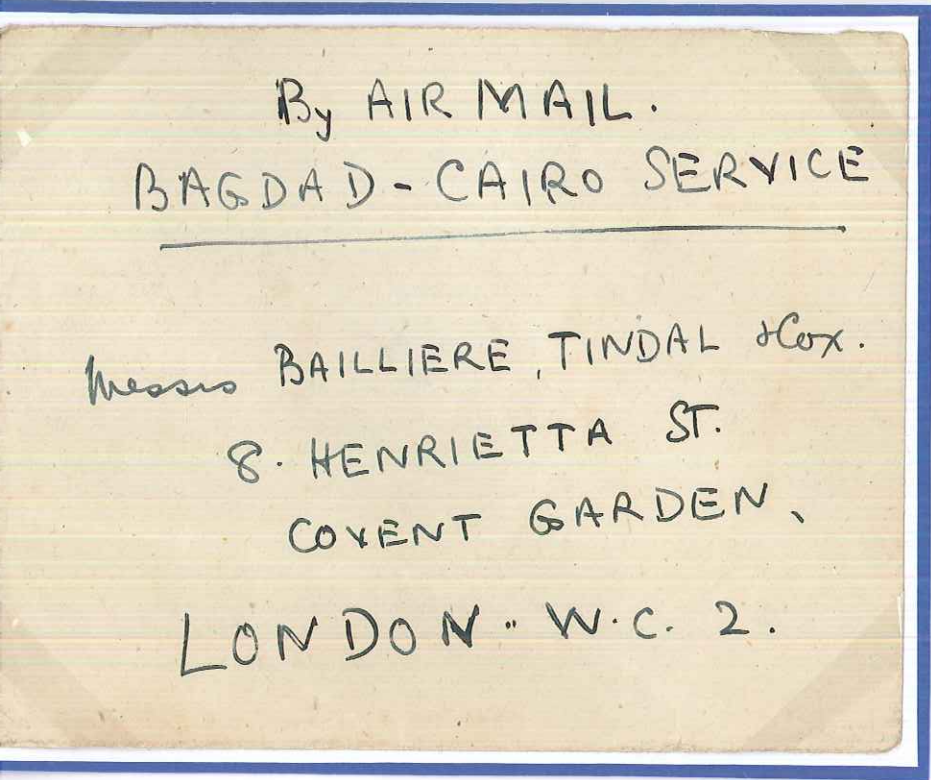 By AIR MAIL.
BAGDAD - CAIRO SERVICE
Messrs BAILLIERE, TINDAL & Cox.
8. HENRIETTA ST.
COVENT GARDEN,
LONDON. W.C. 2.